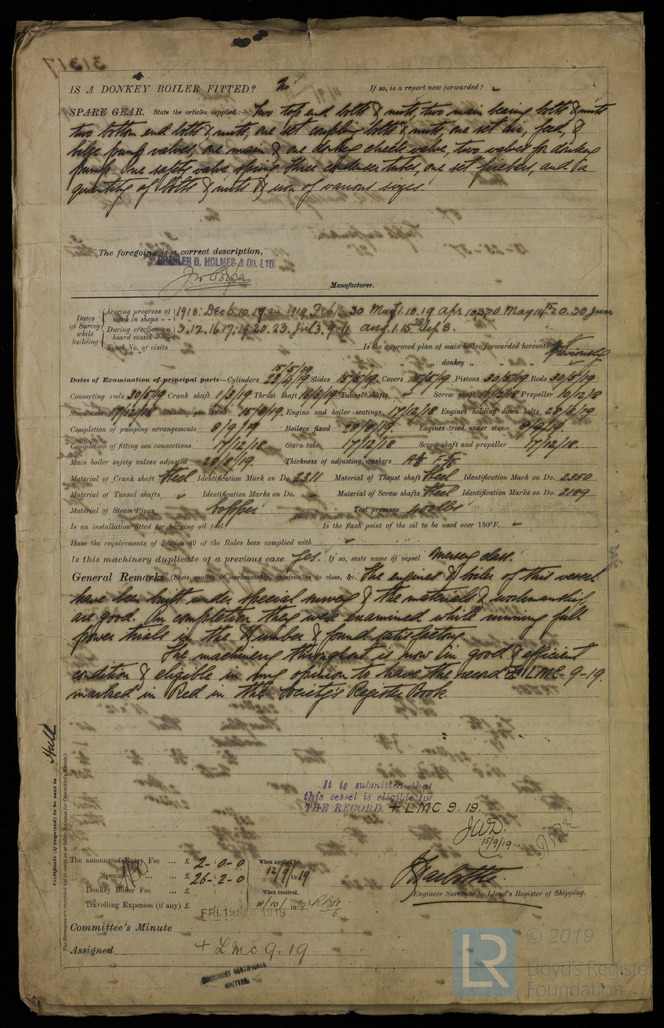 IS A DONKEY BOILER FITTED? No If so, is a report now forwarded? -
SPARE GEAR. State the articles supplied:- Two top end bolts & nuts, two main bearing bolts & nuts
two bottom end bolts & nuts, one set coupling bolts & nuts, one set air, feed, &
bilge pump valves, one main & one donkey check valve, two valves for donkey
pump one safety valve spring three condenser tubes, one set firebars, and a
quantity of bolts & nuts & iron of various sizes.
The foregoing is a correct description,
CHARLES D. HOLMES & CO. LTD.
Manufacturer.
Dates of Survey while building
During progress of work in shops - - 1918. Dec 6. 10. 19. 1919. Feb 30 May 1. 10. 19 Apr May 14 20. 30 June
During erection on board vessel - - 3. 12. 16. 17. 19. 20. 23. Jul 3. 9. 11 Aug. 1. 15 Sep 8.
Total No. of visits Is the approved plan of main boiler forwarded herewith Previously
" " " donkey " " "
15/5/19
Dates of Examination of principal parts—Cylinders 28/4/19 Slides 15/5/19 Covers 15/5/19 Pistons 30/5/19 Rods 30/5/19
Connecting rods 30/5/19 Crank shaft 1/3/19 Thrust shaft Tunnel shafts - Screw shaft 10/12/18 Propeller 10/12/18
Stern tube 17/12/18 Steam pipes tested 15/8/19 Engine and boiler seatings 17/12/18 Engines holding down bolts 28/8/19
Completion of pumping arrangements 8/9/19 Boilers fixed 28/8/19 Engines tried under steam 8/9/19
Completion of fitting sea connections 17/12/18 Stern tube 17/12/18 Screw shaft and propeller 17/12/18.
Main boiler safety valves adjusted 28/8/19 Thickness of adjusting washers
Material of Crank shaft Steel Identification Mark on Do. 2311 Material of Thrust shaft Steel Identification Mark on Do. 2350
Material of Tunnel shafts - Identification Marks on Do. - Material of Screw shafts Steel Identification Marks on Do. 2189
Material of Steam Pipes Copper Test pressure 400 lbs
Is an installation fitted for burning oil fuel - Is the flash point of the oil to be used over 150°F. -
Have the requirements of Section 49 of the Rules been complied with -
Is this machinery duplicate of a previous case Yes. If so, state name of vessel Mersey class.
General Remarks (State quality of workmanship, opinions as to class, &c. The engines & boiler of this vessel
have been built under special survey & the materials & workmanship
are good. On completion they were examined while running full
power trials in the Humber & found satisfactory
The machinery throughout is now in good & efficient
condition & eligible in my opinion to have the record + LMC - 9-19.
marked in Red in the Society's Register Book
Hull
Certificate (if required) to be sent to
It is submitted that
this vessel is eligible for
THE RECORD. + LMC 9.19.
JWD.
15/9/19.
The amount of Entry Fee ... £ 2-0-0 When applied for,
Special ... £ 26-2-0 12/9/19
Donkey Boiler Fee ... £ When received,
Travelling Expenses (if any) £
Engineer Surveyor to Lloyd's Register of Shipping.
Committee's Minute FRI. 19 SEP. 1919
Assigned + LMC 9.19
MACHINERY CERTIFICATE
WRITTEN.
LR © 2019
Lloyd's Register
Foundation